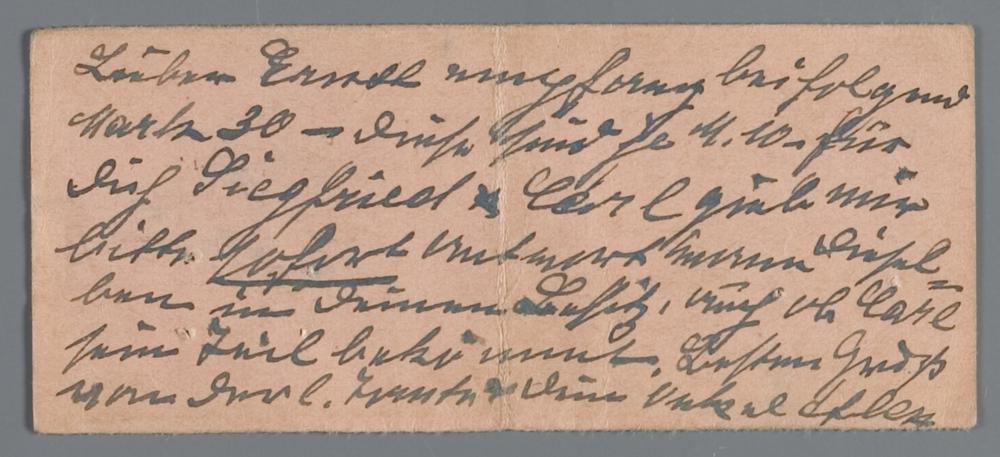 Lieber Ernst empfang beifolgend
Mark 30 – diese sind je M. 10. für
dich Siegfried & Carl gieb mir
bitte sofort Antwort wann diesel=
ben in deinem Besitz, auch ob Carl
sein Teil bekömmt. Besten Gruß
von der l. Tante & dein Onkel